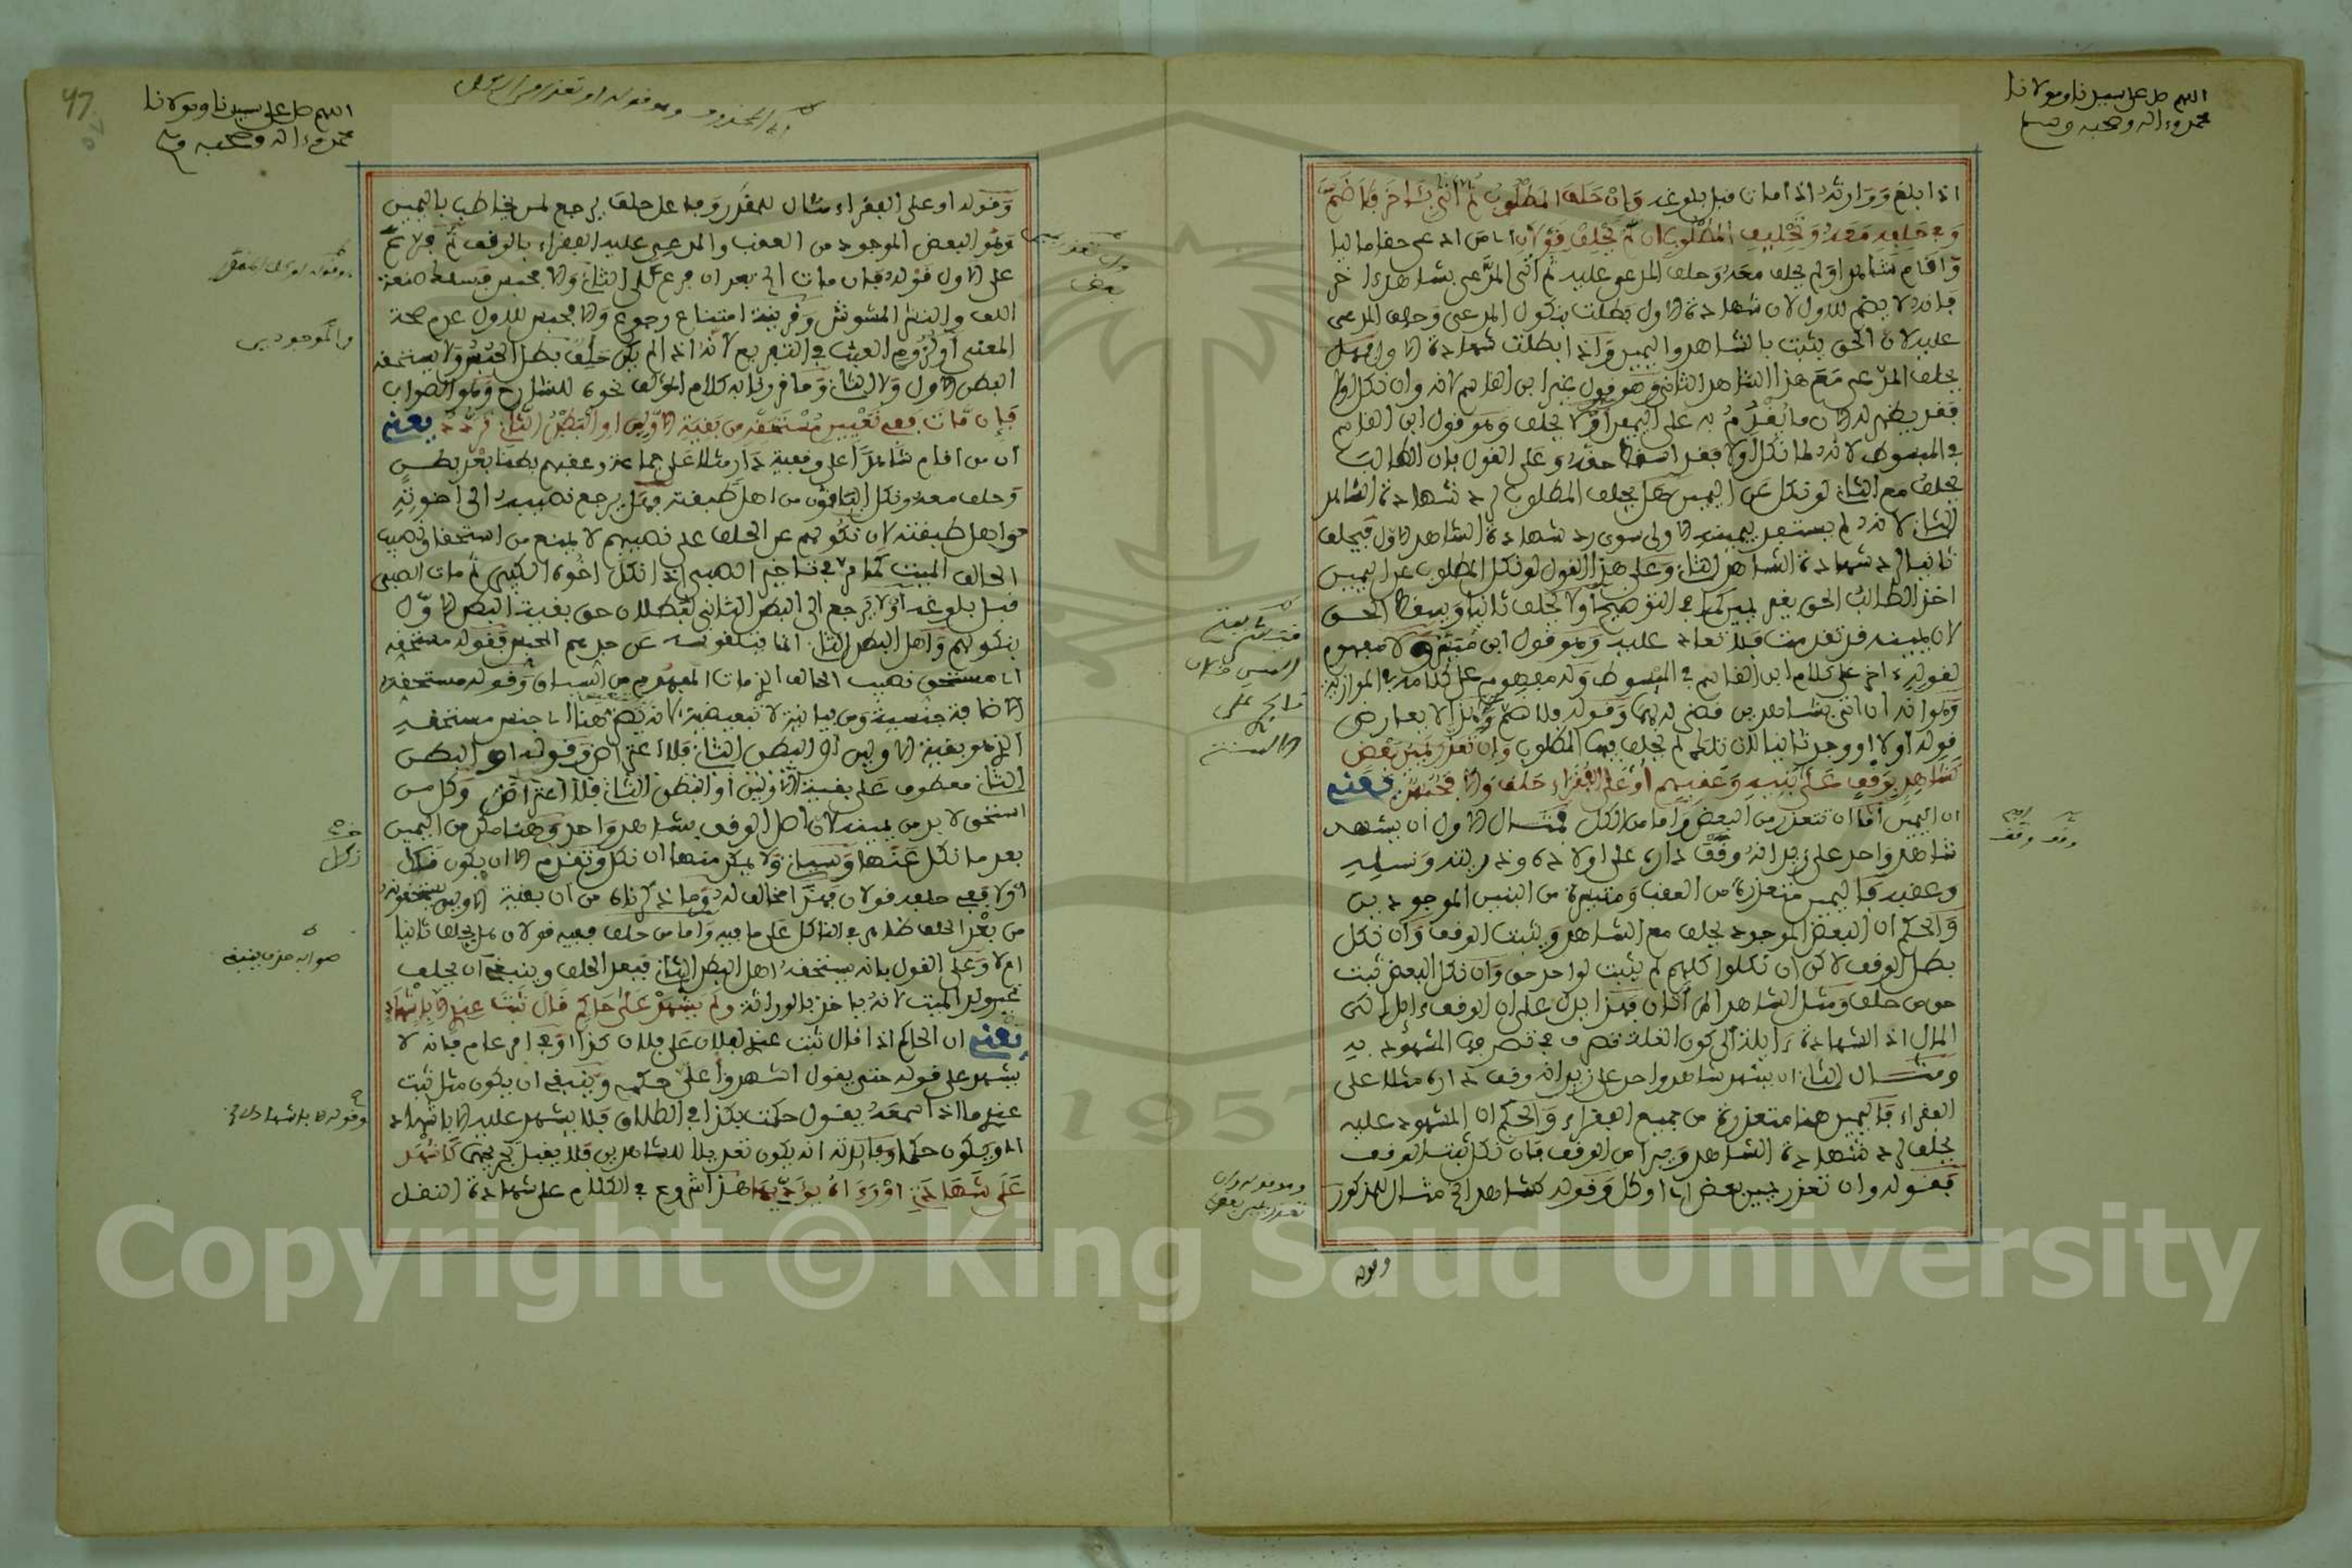 اللهم صل على سيدنا ومولانا
محمد وءاله وصحبه وسلم
اذا بلغ ووارثه اذا مات قبل بلوغه وان حلف المطلوب ثم اتى بآخر فلا ضم
وفي حلفه معه وتحليف المطلوب ان لم يحلف قولان اي من ادعى حقا ماليا
واقام شاهدا ولم يحلف معه وحلف المدعى عليه ثم اتى المدعي بشاهد ءاخر
فانه لا يضم للاول لان شهادة الاول بطلت بنكول المدعي وحلف المدعى
عليه لان الحق يثبت بالشاهد واليمين واذا بطلت شهادة الاول فهل
يحلف المدعي مع هذا الشاهد الثاني وهو قول غير ابن القاسم لانه وان نكل اولا
فقد يظهر له الان ما يقدم به على اليمين اولا يحلف وهو قول ابن القاسم
في المبسوط لانه لما نكل اولا فقد اسقط حقه وعلى القول بان الطالب
يحلف مع الثاني لو نكل عن اليمين هل يحلف المطلوب لرد شهادة الشاهد
الثاني لانه لم يستفد بيمينه الاولى سوى رد شهادة الشاهد الاول فيحلف
ثانيا لرد شهادة الشاهد الثاني وعلى هذا القول لو نكل المطلوب عن اليمين
اخذ الطالب الحق بغير يمين كما في التوضيح اولا يحلف ثانيا ويسقط الحق
لان يمينه قد تقدمت فلا تعاد عليه وهو قول ابن ميسر ولا مفهوم
لقوله ءاخر على كلام ابن القاسم في المبسوط وله مفهوم على كلامه في الموازية
وهو انه ان اتى بشاهدين قضي له بهما وقوله فلا ضم وهذا لا يعارض
قوله اولا او وجد ثانيا لان تلك لم يحلف فيها المطلوب وان تعذر يمين بعض
كشاهد بوقف على بنيه وعقبهم او على الفقراء حلف والا فحبس يعني
ان اليمين اما ان تتعذر من البعض واما من الكل فمثال الاول ان يشهد
شاهد واحد على زيد انه وقف داره على اولاده وذريته ونسله
وعقبه فاليمين متعذرة من العقب ومتيسرة من البنين الموجودين
والحكم ان البعض الموجود يحلف مع الشاهد ويثبت الوقف وان نكل
بطل الوقف لاكن ان نكلوا كلهم لم يثبت لواحد حق وان نكل البعض ثبت
حق من حلف ومثل الشاهد المرأتان فهذا يدل على ان الوقف ءايل الى
المال اذ الشهادة ءايلة الى كون الغلة تصرف في تصرفها المشهود به
ومثال الثاني ان يشهد شاهد واحد على زيد انه وقف داره مثلا على
الفقراء فاليمين هنا متعذرة من جميع الفقراء والحكم ان المشهود عليه
يحلف لرد شهادة الشاهد ويبرأ من الوقف فان نكل ثبت الوقف
فقوله وان تعذر يمين بعض اي او كل وقوله كشاهد الخ مثال للمذكور
وقوله
وهو قوله وان
تعذر يمين بعض
اللهم صل على سيدنا ومولانا
محمد وءاله وصحبه وسلم
47
وقوله او على الفقراء مثال للمقدر وفاعل حلف يرجع لمن يخاطب باليمين
وهو البعض الموجود من العقب والمدعى عليه الفقراء بالوقف ثم فلا تم
على الاول قوله فان مات الخ بعد ان فرع على الثاني والا فحبس فسلك صنعة
اللف والنشر المشوش وقرينة امتناع رجوع والا فحبس للاول عدم صحة
المعنى اولزوم العبث في التفريع لانه اذا لم يكن حلف بطل الحبس ولا يستحقه
البطن الاول ولا الثاني وما قررنا به كلام المؤلف نحوه للشارح وهو الصواب
فان مات ففي تعيين مستحقه من بقية الاولين او البطن الثاني تردد يعني
ان من اقام شاهدا على وقفية دار مثلا على جماعة وعقبهم بطنا بعد بطن
وحلف معه ونكل الباقون من اهل طبقته فهل يرجع نصيبه الى اخوته
واهل طبقته لان نكولهم عن الحلف على نصيبهم لا يمنع من استحقاق نصيب
الحالف الميت كما مر في تاخير الصبي اذا نكل اخوه الكبير ثم مات الصبي
قبل بلوغه اولا يرجع الى البطن الثاني لبطلان حق بقية البطن الاول
بنكولهم واهل البطن الثاني انما يتلقونه عن جدهم المحبس فقوله مستحقه
اي مستحق نصيب الحالف الذي مات المفهوم من السياق وقوله مستحقه
الاضافة جنسية ومن بيانية لا تبعيضية لانه يصح هنا اي جنس مستحقه
الذي هو بقية الاولين او البطن الثاني فلا اعتراض وقوله او البطن
الثاني معطوف على بقية الاولين او البطن الثاني فلا اعتراض وكل من
استحق لا بد من يمينه لان اصل الوقف بشاهد واحد وهنا من اليمين
بعد ما نكل عنها ولا يمكن منها ان نكل وتقدم الا ان يكون نكل
اولا ففي حلفه قولان فهذا مخالف له وما ذكرناه من ان بقية الاولين يستحقونه
من بعد الحلف ظاهر في الناكل على ما فيه واما من حلف ففيه قولان هل يحلف ثانيا
ام لا وعلى القول بانه يستحقه اهل البطن الثاني فبعد الحلف وينبغي ان يحلف
غير ولد الميت لانه ياخذ بالوراثة ولم يشهد على حاكم قال ثبت عندي الا باشهاد
يعني ان الحاكم اذا قال ثبت عندي لفلان على فلان كذا او في امر عام فانه لا
يشهد على قوله حتى يقول اشهدوا على حكمي وينبغي ان يكون مثل ثبت
عندي ما اذا سمعه يقول حكمت بكذا في الطلاق فلا يشهد عليه الا باشهاد
او يكون حكما وفائدته انه يكون تعديلا للشاهدين فلا يقبل تجريحهما كاشهد
على شهادتي او رءاه يؤديها هذا شروع في الكلام على شهادة النقل
والموجودين
صوابه حذف بقية
وقوله الا باشهاد
Copyright © King Saud University
1957